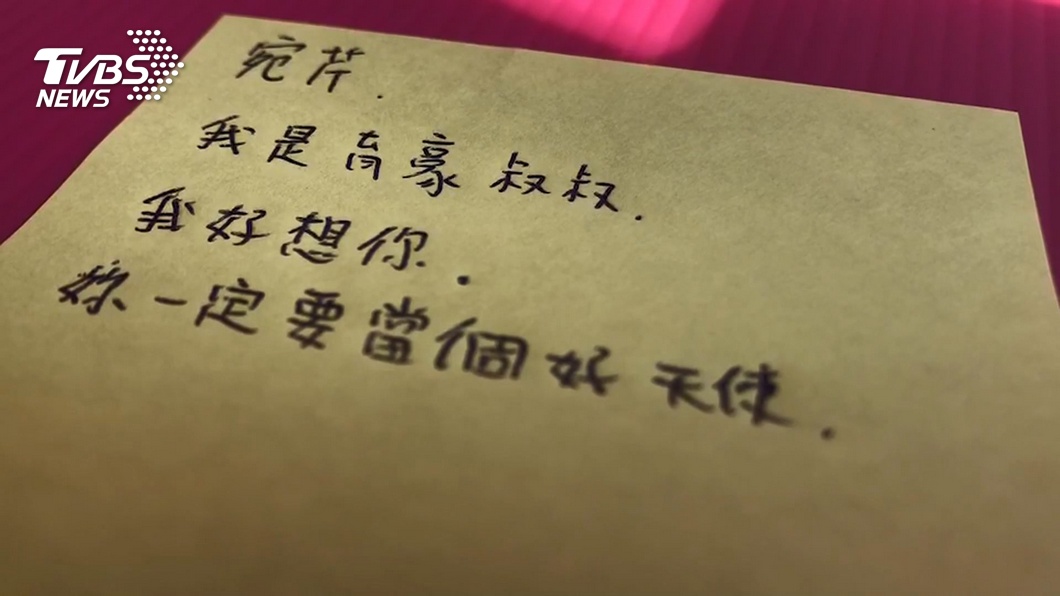 TVBS
NEWS
宛芹.
我是育豪叔叔.
我好想你.
妳一定要當個好天使.